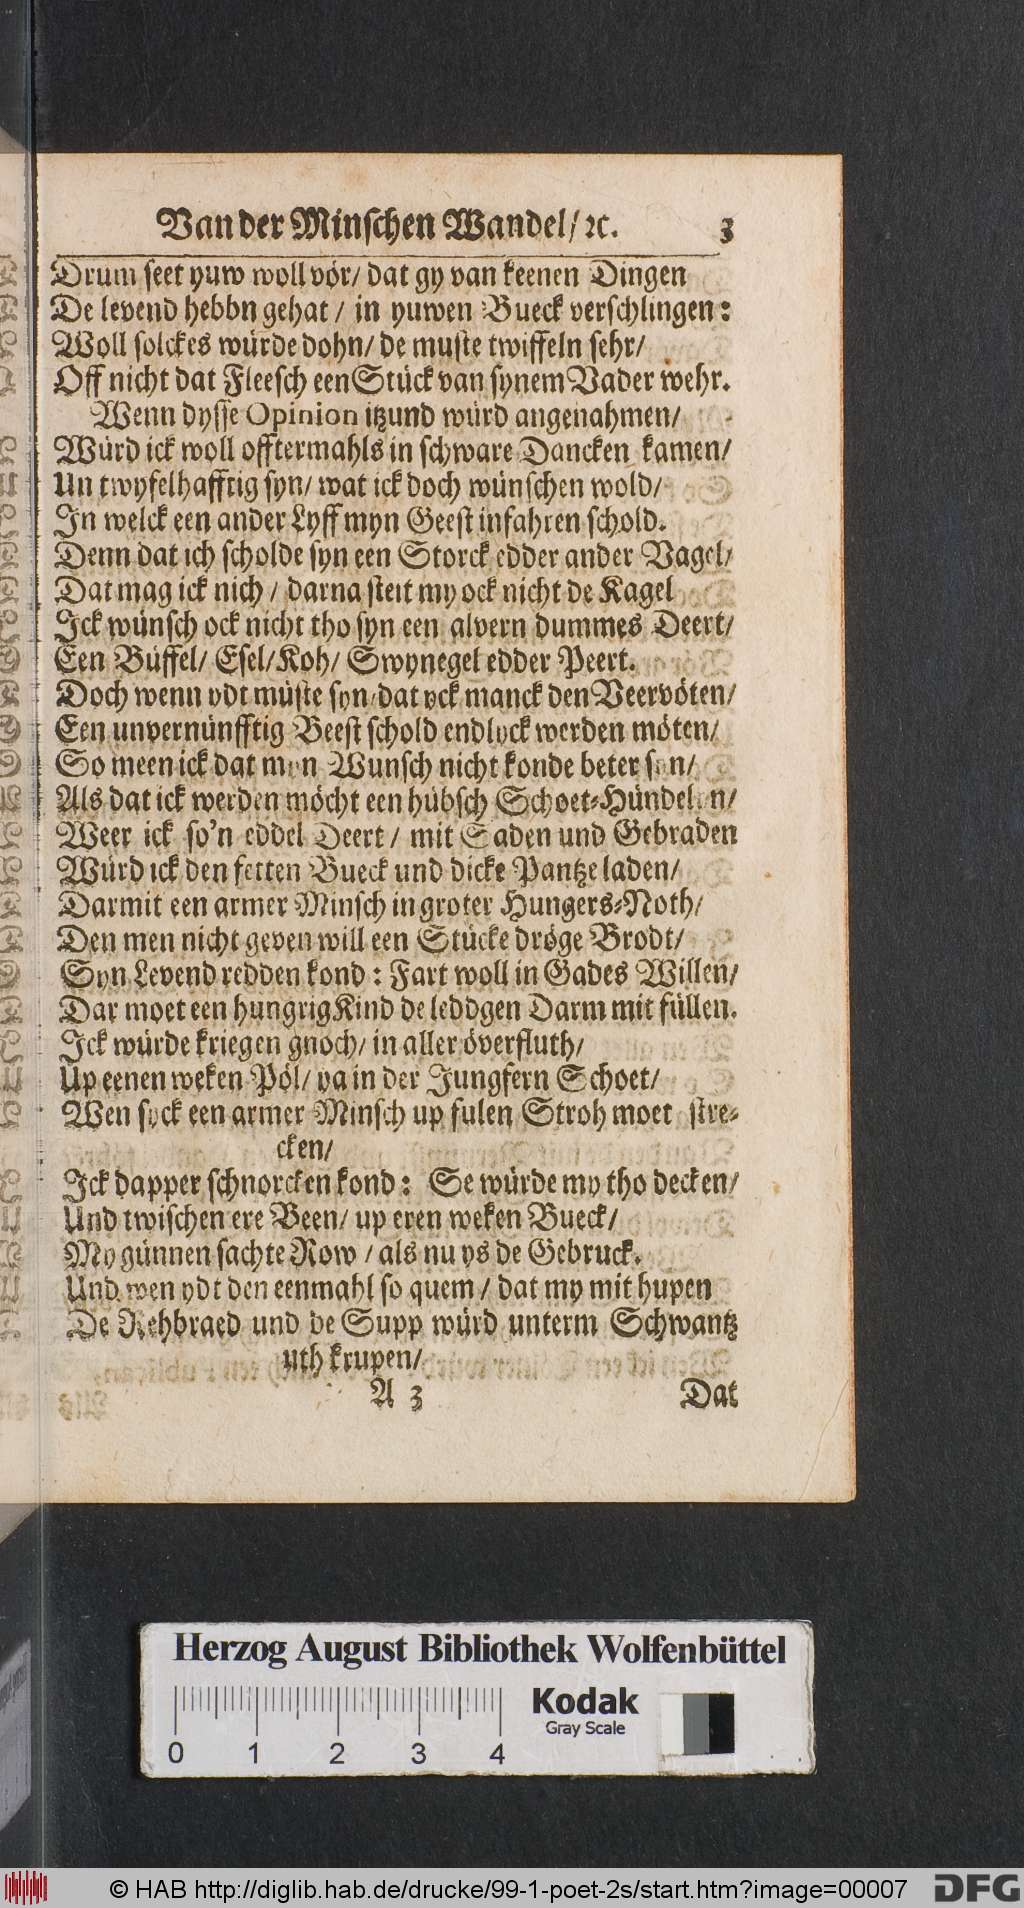 Van der Minschen Wandel/ ꝛc. 3
Drum seet yuw woll vör/ dat gy van keenen Dingen
De levend hebbn gehat / in yuwen Bueck verschlingen:
Woll solckes würde dohn/ de muste twiffeln sehr/
Off nicht dat Fleesch een Stück van synem Vader wehr.
Wenn dysse Opinion itzund würd angenahmen/
Würd ick woll offtermahls in schware Dancken kamen/
Un twyfelhafftig syn/ wat ick doch wünschen wold/
In welck een ander Lyff myn Geest infahren schold.
Denn dat ich scholde syn een Storck edder ander Vagel/
Dat mag ick nich / darna steit my ock nicht de Kagel
Ick wünsch ock nicht tho syn een alvern dummes Deert/
Een Büffel/ Esel/ Koh/ Swynegel edder Peert.
Doch wenn ydt müste syn/ dat yck manck den Veervöten/
Een unvernünfftig Beest schold endlyck werden möten/
So meen ick dat myn Wunsch nicht konde beter syn/
Als dat ick werden möcht een hübsch Schoet-Hündelyn/
Weer ick so'n eddel Deert / mit Saden und Gebraden
Würd ick den fetten Bueck und dicke Pantze laden/
Darmit een armer Minsch in groter Hungers-Noth/
Den men nicht geven will een Stücke dröge Brodt/
Syn Levend redden kond : Fart woll in Gades Willen/
Dar moet een hungrig Kind de leddgen Darm mit füllen.
Ick würde kriegen gnoch/ in aller överfluth/
Up eenen weken Pöl/ ya in der Jungfern Schoet/
Wen syck een armer Minsch up fulen Stroh moet stre-
cken/
Ick dapper schnorcken kond : Se würde my tho decken/
Und twischen ere Been/ up eren weken Bueck/
My günnen sachte Row / als nu ys de Gebruck.
Und wen ydt den eenmahl so quem / dat my mit hupen
De Rehbraed und de Supp würd unterm Schwantz
uth krupen/
A 3 Dat
Herzog August Bibliothek Wolfenbüttel
Kodak
Gray Scale
0 1 2 3 4
© HAB http://diglib.hab.de/drucke/99-1-poet-2s/start.htm?image=00007 DFG